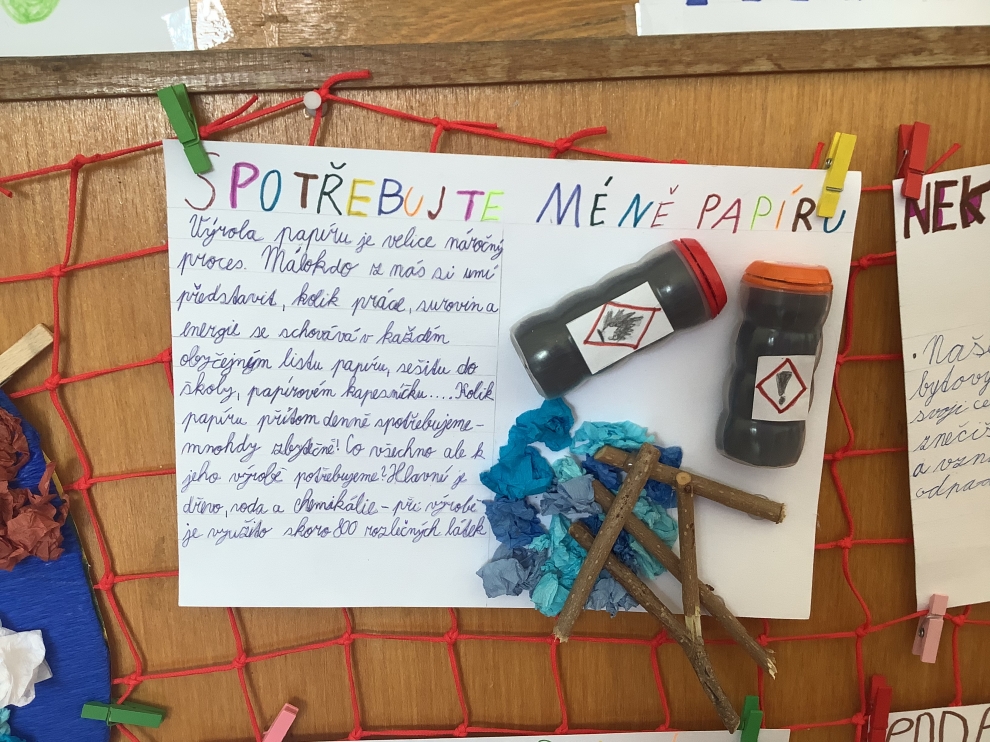 SPOTŘEBUJTE MÉNĚ PAPÍRU
Výroba papíru je velice náročný
proces. Málokdo z nás si umí
představit, kolik práce, surovin a
energie se schovává v každém
obyčejném listu papíru, sešitu do
školy, papírovém kapesníčku.... Kolik
papíru přitom denně spotřebujeme-
mnohdy zbytečně! Co všechno ale k
jeho výrobě potřebujeme? Hlavní je
dřevo, voda a chemikálie - při výrobě
je využito skoro 800 rozličných látek
NEK
• Naše
bytový
svojí ce
znečiš
a vzni
odpa